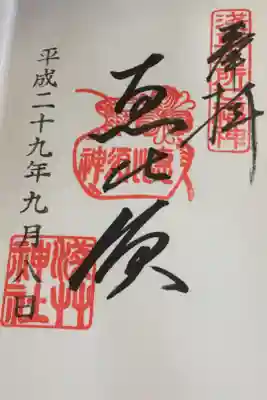 奉拝
恵比須
恵比須神
平成二十九年九月八日
神社